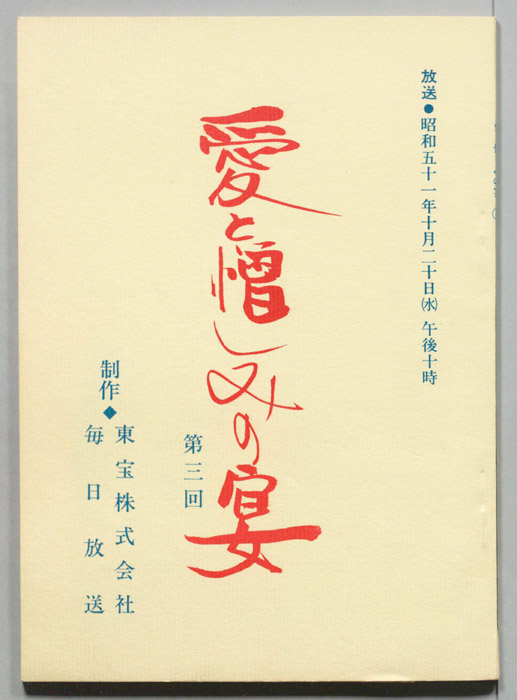 放送●昭和五十一年十月二十日㈬ 午後十時
愛と憎しみの宴
第三回
制作◆東宝株式会社
毎日放送